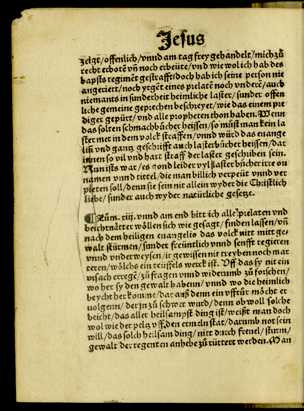 Jesus
zelgt/offenlich/vnnd am tag frey gehandelt/mich zů
recht erbotē vñ noch erbeüte/vnd wie wol ich hab des
bapsts regimēt gestrafft/doch hab ich seine person nie
angeriert/noch yrgēt eines prelatē noch vnderē/auch
niemants in sunderheit heimliche laster/sunder offen
liche gemeine geprechen beschreyet/wie das einem pre
diger gepürt/vnd alle propheten thon haben. Wenn
das solten schmachbücher heissen/so müst man kein la
ster me in dem volck straffen/vnnd würd das euange
lium vnd gantz geschrifft auch lasterbücher heissen/dar
innen so vil vnd hart straff der laster geschriben sein.
Nun ists war/es sond leider vyl laster bücher itz on
namen vnnd titel/die man billich verpeüt vnnd ver
pieten soll/denn sie sein nit allein wyder die Christlich
liebe/sunder auch wyder natürliche gesetz.
Zům. iiij. vnnd am end bitt ich alle prelaten vnd
beichtuåtter wöllen sich wie gesagt/finden lassen/vñ
nach dem heiligen euangelio das volck nitt mitt ge
walt stürmen/sunder freüntlich vnnd senfft regieren
vnnd vnderweysen/ir gewissen nit treyben noch mar
teren/wölchs ein teüffels werck ist. Vff das sy nit ein
vrsach erregē/zů fragen vnnd widerumb zů forschen/
wo her sy den gewalt haben/vnnd wo die heimlich
beycht her komme/dar auß denn ein vffrůr möcht er
uolgenn/der jn zů schwer wurd/denn ob woll solche
beicht/das aller heilsampst ding ist/weißt man doch
wol wie der peltz vff den ermeln stat/darumb not sein
will/das solch heilsam ding/nitt durch freuel/sturm/
gewalt der regenten anhebe zů rüttert werden. Man